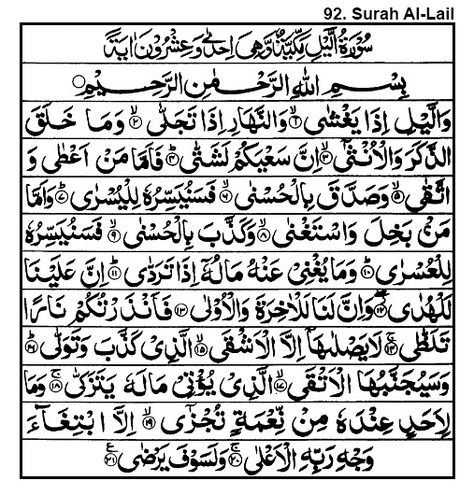 92. Surah Al-Lail
سُوْرَةُ الَّيْلِ مَكِّيَّةٌ وَّهِيَ اِحْدٰى وَّعِشْرُوْنَ اٰيَةً
بِسْمِ اللّٰهِ الرَّحْمٰنِ الرَّحِيْمِ
وَالَّيْلِ اِذَا يَغْشٰى ۙ﴿۱﴾ وَالنَّهَارِ اِذَا تَجَلّٰى ۙ﴿۲﴾ وَمَا خَلَقَ
الذَّكَرَ وَالْاُنْثٰٓى ۙ﴿۳﴾ اِنَّ سَعْيَكُمْ لَشَتّٰى ؕ﴿۴﴾ فَاَمَّا مَنْ اَعْطٰى وَ
اتَّقٰى ۙ﴿۵﴾ وَصَدَّقَ بِالْحُسْنٰى ۙ﴿۶﴾ فَسَنُيَسِّرُهٗ لِلْيُسْرٰى ؕ﴿۷﴾ وَاَمَّا
مَنْۢ بَخِلَ وَاسْتَغْنٰى ۙ﴿۸﴾ وَكَذَّبَ بِالْحُسْنٰى ۙ﴿۹﴾ فَسَنُيَسِّرُهٗ
لِلْعُسْرٰى ؕ﴿۱۰﴾ وَمَا يُغْنِيْ عَنْهُ مَالُهٗٓ اِذَا تَرَدّٰى ؕ﴿۱۱﴾ اِنَّ عَلَيْنَا
لَلْهُدٰى ۖ﴿۱۲﴾ وَاِنَّ لَنَا لَلْاٰخِرَةَ وَالْاُوْلٰى ﴿۱۳﴾ فَاَنْذَرْتُكُمْ نَارًا
تَلَظّٰى ۚ﴿۱۴﴾ لَا يَصْلٰىهَآ اِلَّا الْاَشْقَى ۙ﴿۱۵﴾ الَّذِيْ كَذَّبَ وَتَوَلّٰى ؕ﴿۱۶﴾
وَسَيُجَنَّبُهَا الْاَتْقَى ۙ﴿۱۷﴾ الَّذِيْ يُؤْتِيْ مَالَهٗ يَتَزَكّٰى ۚ﴿۱۸﴾ وَمَا
لِاَحَدٍ عِنْدَهٗ مِنْ نِّعْمَةٍ تُجْزٰٓى ۙ﴿۱۹﴾ اِلَّا ابْتِغَآءَ
وَجْهِ رَبِّهِ الْاَعْلٰى ۚ﴿۲۰﴾ وَلَسَوْفَ يَرْضٰى ﴿۲۱﴾